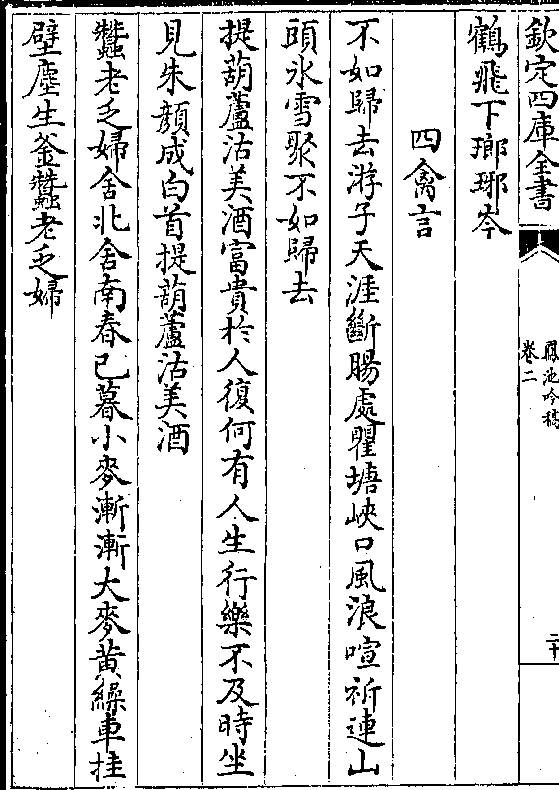 欽定四庫全書
鳳池吟稿
卷二
二十
鶴飛下瑯琊岑
四禽言
不如歸去游子天涯斷腸處瞿塘峽口風浪喧祈連山
頭氷雪聚不如歸去
提葫蘆沽美酒富貴於人復何有人生行樂不及時坐
見朱顔成白首提葫蘆沽美酒
蠶老乏婦舍北舍南春已暮小麥漸漸大麥黄繰車挂
壁塵生釜蠶老乏婦